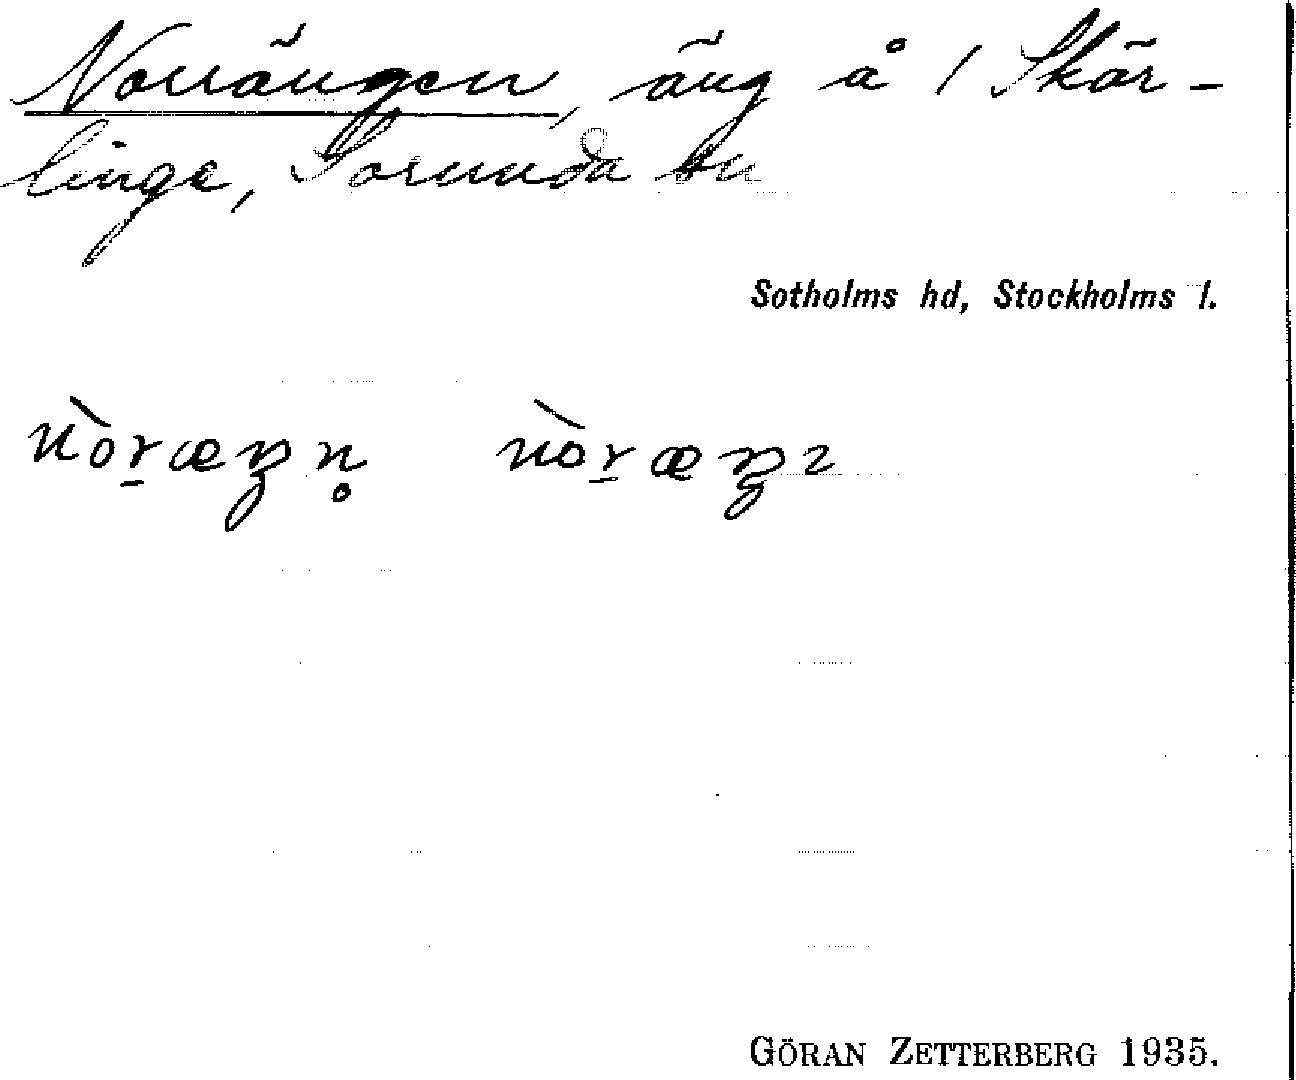 Norrängen, äng å 1 Skär-
linge, Sorunda sn
Sotholms hd, Stockholms l.
GÖRAN ZETTERBERG 1935.